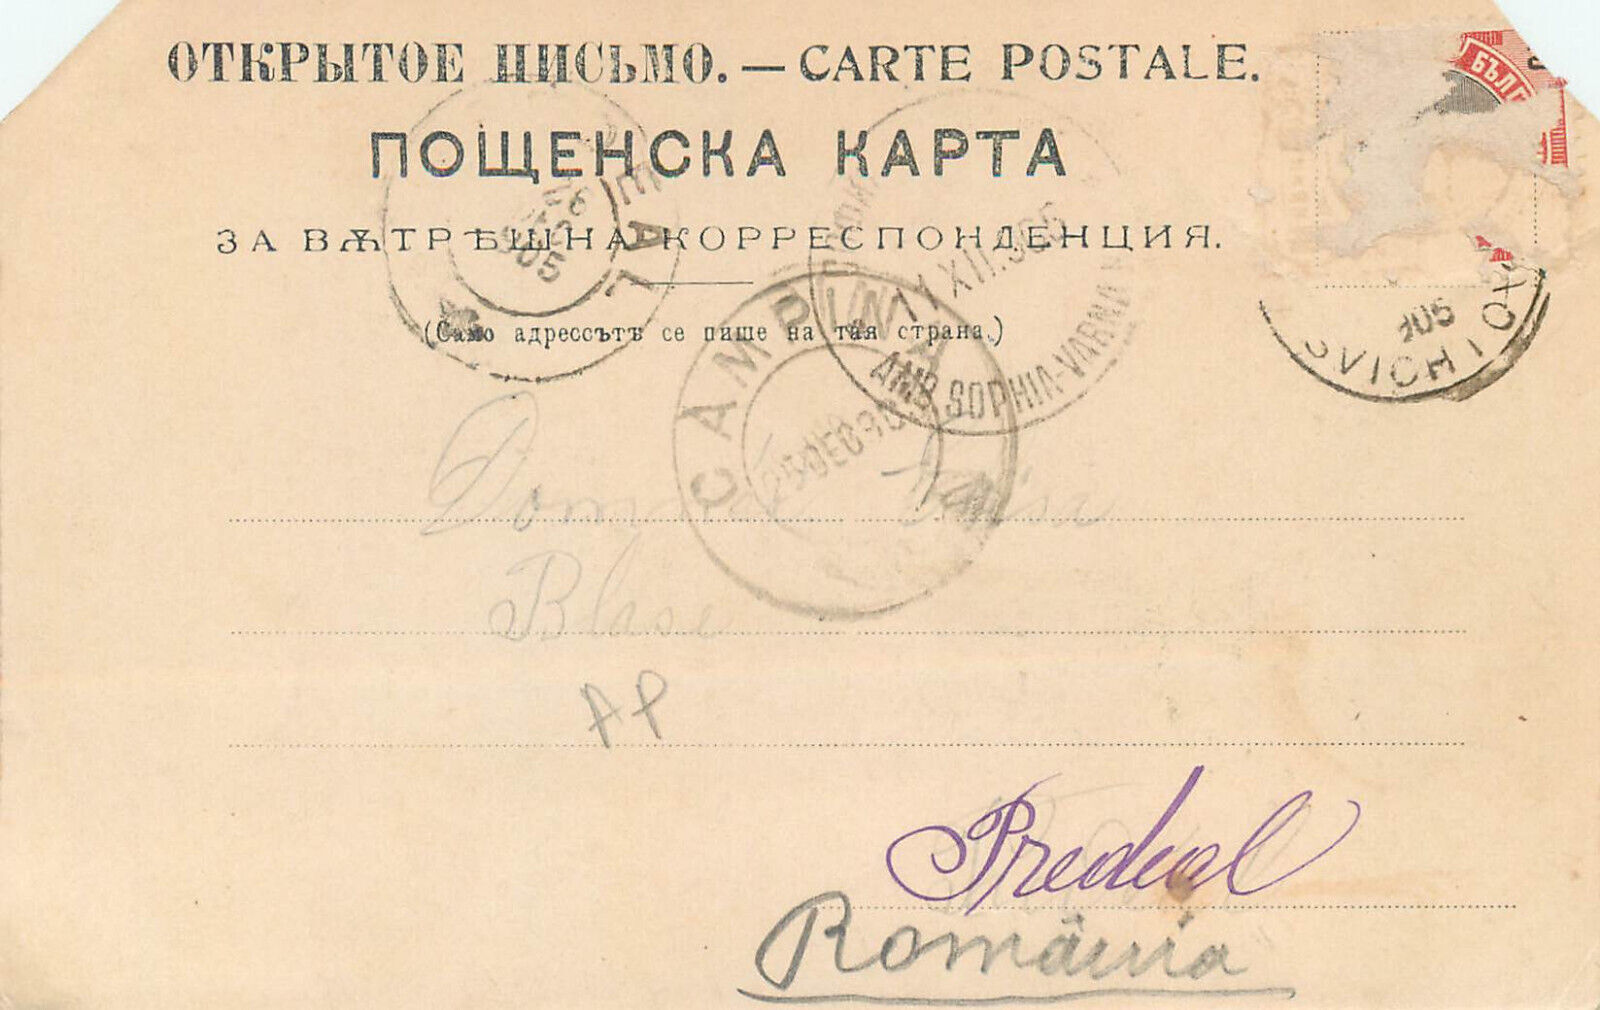 ОТКРЫТОЕ ПИСЬМО. — CARTE POSTALE.
БЪЛГ
ПОЩЕНСКА КАРТА
ЗА ВѪТРѢШНА КОРРЕСПОНДЕНЦИЯ.
(Само адрессътъ се пише на тая страна.)
26
905
11 XII. 905
AMB. SOPHIA-VARNA
905
SVICHTOV
CAMPINA
25 DEC 90
Blase
AP
Predeal
România